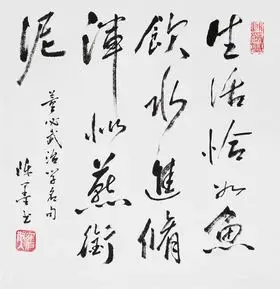 生活恰如魚
飲水進脩
渾似燕銜
泥
董必武治学名句